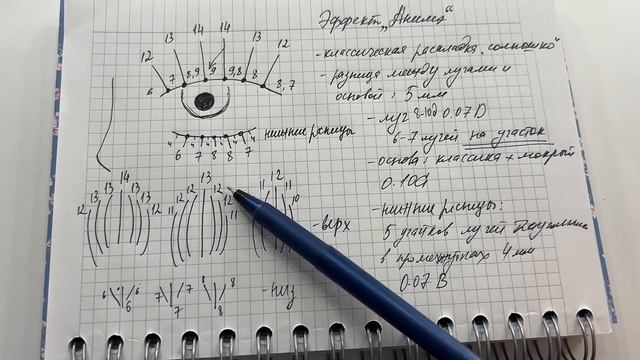 Эффект „Аниме“
- классическая раскладка „солнышко“
- разница между лучами и
основой: 5 мм
- луч 8-10d 0.07 D
6-7 лучей на участок
- основа: классика + мокрый
0.10
- нижние ресницы:
5 лучей
в промежутках 4 мм
0.07 B
12 13 14 14 13 12
6 7 8,9 9 9,8 8 8,7
нижние ресницы
4 4 4 4 4 4
6 7 8 8 7
12 13 13 14 13 13 12
11 12 12 13 12 12 11
11 12 11 10
- верх
6 6 6
7 7 7
8 8
- низ